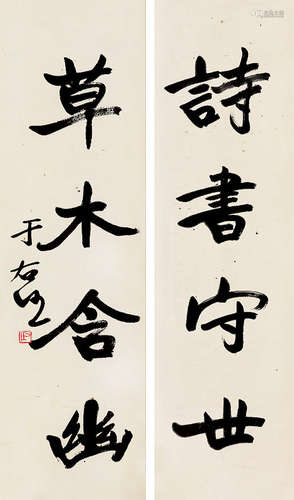 詩書守世
草木含幽
于右任